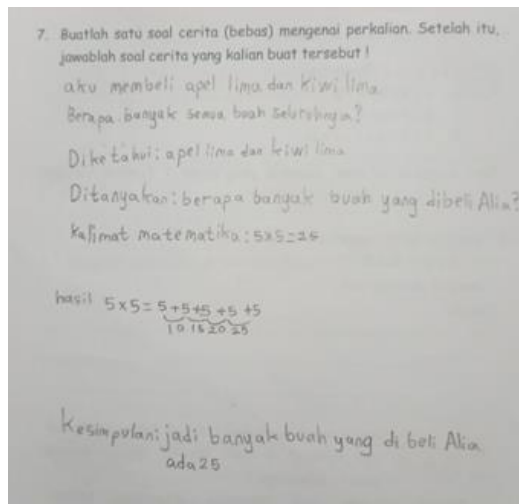 7. Buatlah satu soal cerita (bebas) mengenai perkalian. Setelah itu,
jawablah soal cerita yang kalian buat tersebut !
aku membeli apel lima dan kiwi lima
Berapa banyak semua buah seluruhnya?
Diketahui: apel lima dan kiwi lima
Ditanyakan: berapa banyak buah yang dibeli Alia?
Kalimat matematika: 5x5=25
hasil 5x5= 5+5+5+5+5
10 15 20 25
Kesimpulan: jadi banyak buah yang di beli Alia
ada 25